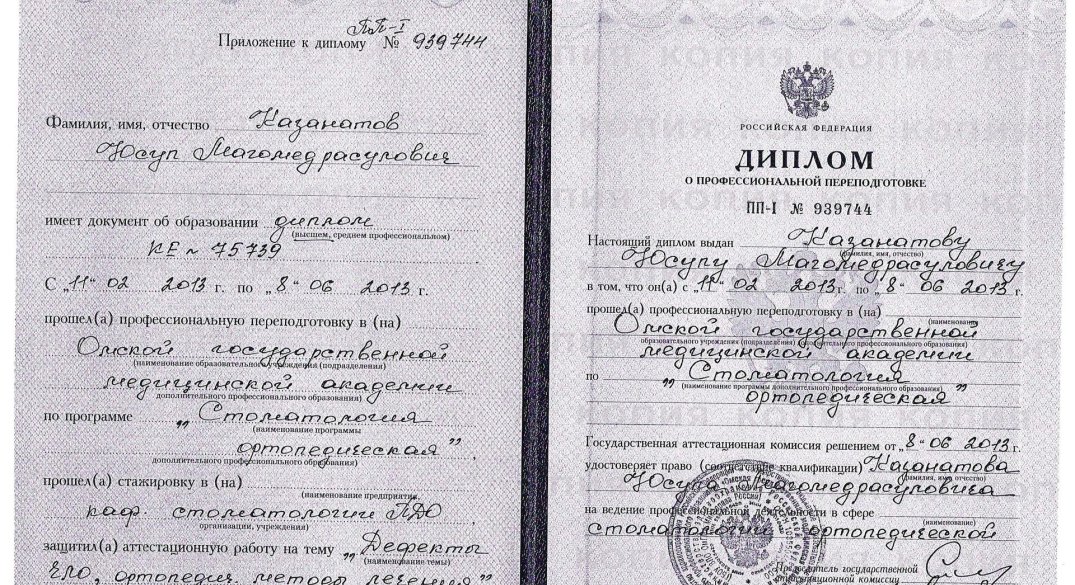 Приложение к диплому ПП-I № 939744
Фамилия, имя, отчество Казанатов
Юсуп Магомедрасулович
имеет документ об образовании диплом
(высшем, среднем профессиональном)
КЕ № 75739
С „11“ 02 2013 г. по „8“ 06 2013 г.
прошел(а) профессиональную переподготовку в (на)
Омской государственной
(наименование образовательного учреждения (подразделения)
медицинской академии
дополнительного профессионального образования)
по программе „Стоматология
(наименование программы
ортопедическая“,
дополнительного профессионального образования)
прошел(а) стажировку в (на)
(наименование предприятия,
каф. стоматологии ПДО
организации, учреждения)
защитил(а) аттестационную работу на тему „Дефекты
(наименование темы)
ЧЛО, ортопедич. методы лечения“
РОССИЙСКАЯ ФЕДЕРАЦИЯ
ДИПЛОМ
О ПРОФЕССИОНАЛЬНОЙ ПЕРЕПОДГОТОВКЕ
ПП-I № 939744
Настоящий диплом выдан Казанатову
(фамилия, имя, отчество)
Юсупу Магомедрасуловичу
в том, что он(а) с „11“ 02 2013 г. по „8“ 06 2013 г.
прошел(а) профессиональную переподготовку в (на)
(наименование
Омской государственной
образовательного учреждения (подразделения) дополнительного профессионального образования)
медицинской академии
по „Стоматология
(наименование программы дополнительного профессионального образования)
ортопедическая“
Государственная аттестационная комиссия решением от „8“ 06 2013 г.
удостоверяет право (соответствие квалификации) Казанатова
(фамилия, имя, отчество)
Юсупа Магомедрасуловича
на ведение профессиональной деятельности в сфере
(наименование)
стоматологии ортопедической
Председатель государственной
аттестационной комиссии